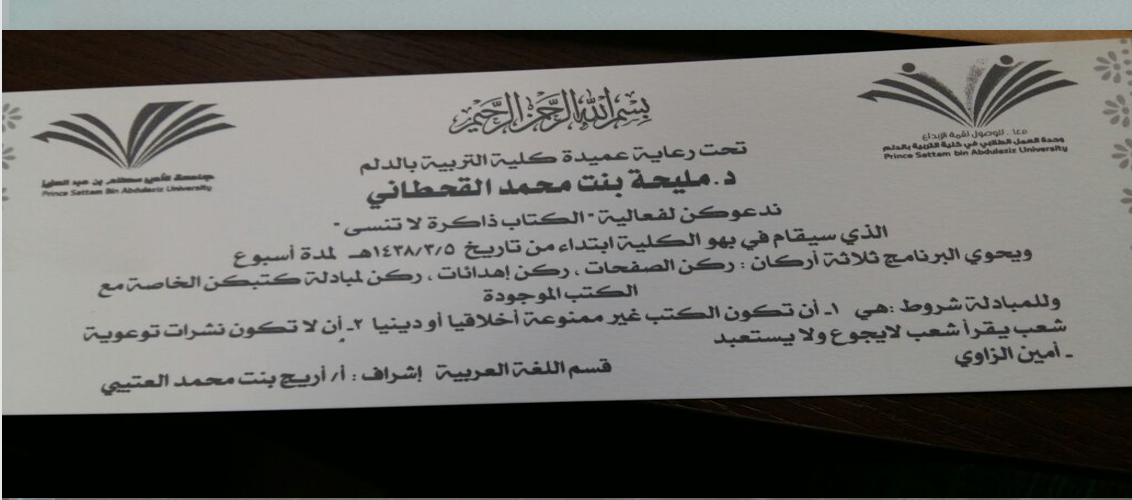 جامعة الأمير سطام بن عبد العزيز
Prince Sattam Bin Abdulaziz University
معا . للوصول لقمة الإبداع
وحدة العمل الطلابي في كلية التربية بالدلم
Prince Sattam bin Abdulaziz University
بسم الله الرحمن الرحيم
تحت رعاية عميدة كلية التربية بالدلم
د. مليحة بنت محمد القحطاني
ندعوكن لفعالية "الكتاب ذاكرة لا تنسى"
الذي سيقام في بهو الكلية ابتداء من تاريخ ١٤٣٨/٣/٥هـ لمدة أسبوع
ويحوي البرنامج ثلاثة أركان : ركن الصفحات ، ركن إهدائات ، ركن لمبادلة كتبكن الخاصة مع
الكتب الموجودة
وللمبادلة شروط :هي ١ـ أن تكون الكتب غير ممنوعة أخلاقيا أو دينيا ٢ـ أن لا تكون نشرات توعوية
شعب يقرأ شعب لايجوع ولا يستعبد
ـ أمين الزاوي
قسم اللغة العربية إشراف : أ/ أريج بنت محمد العتيبي